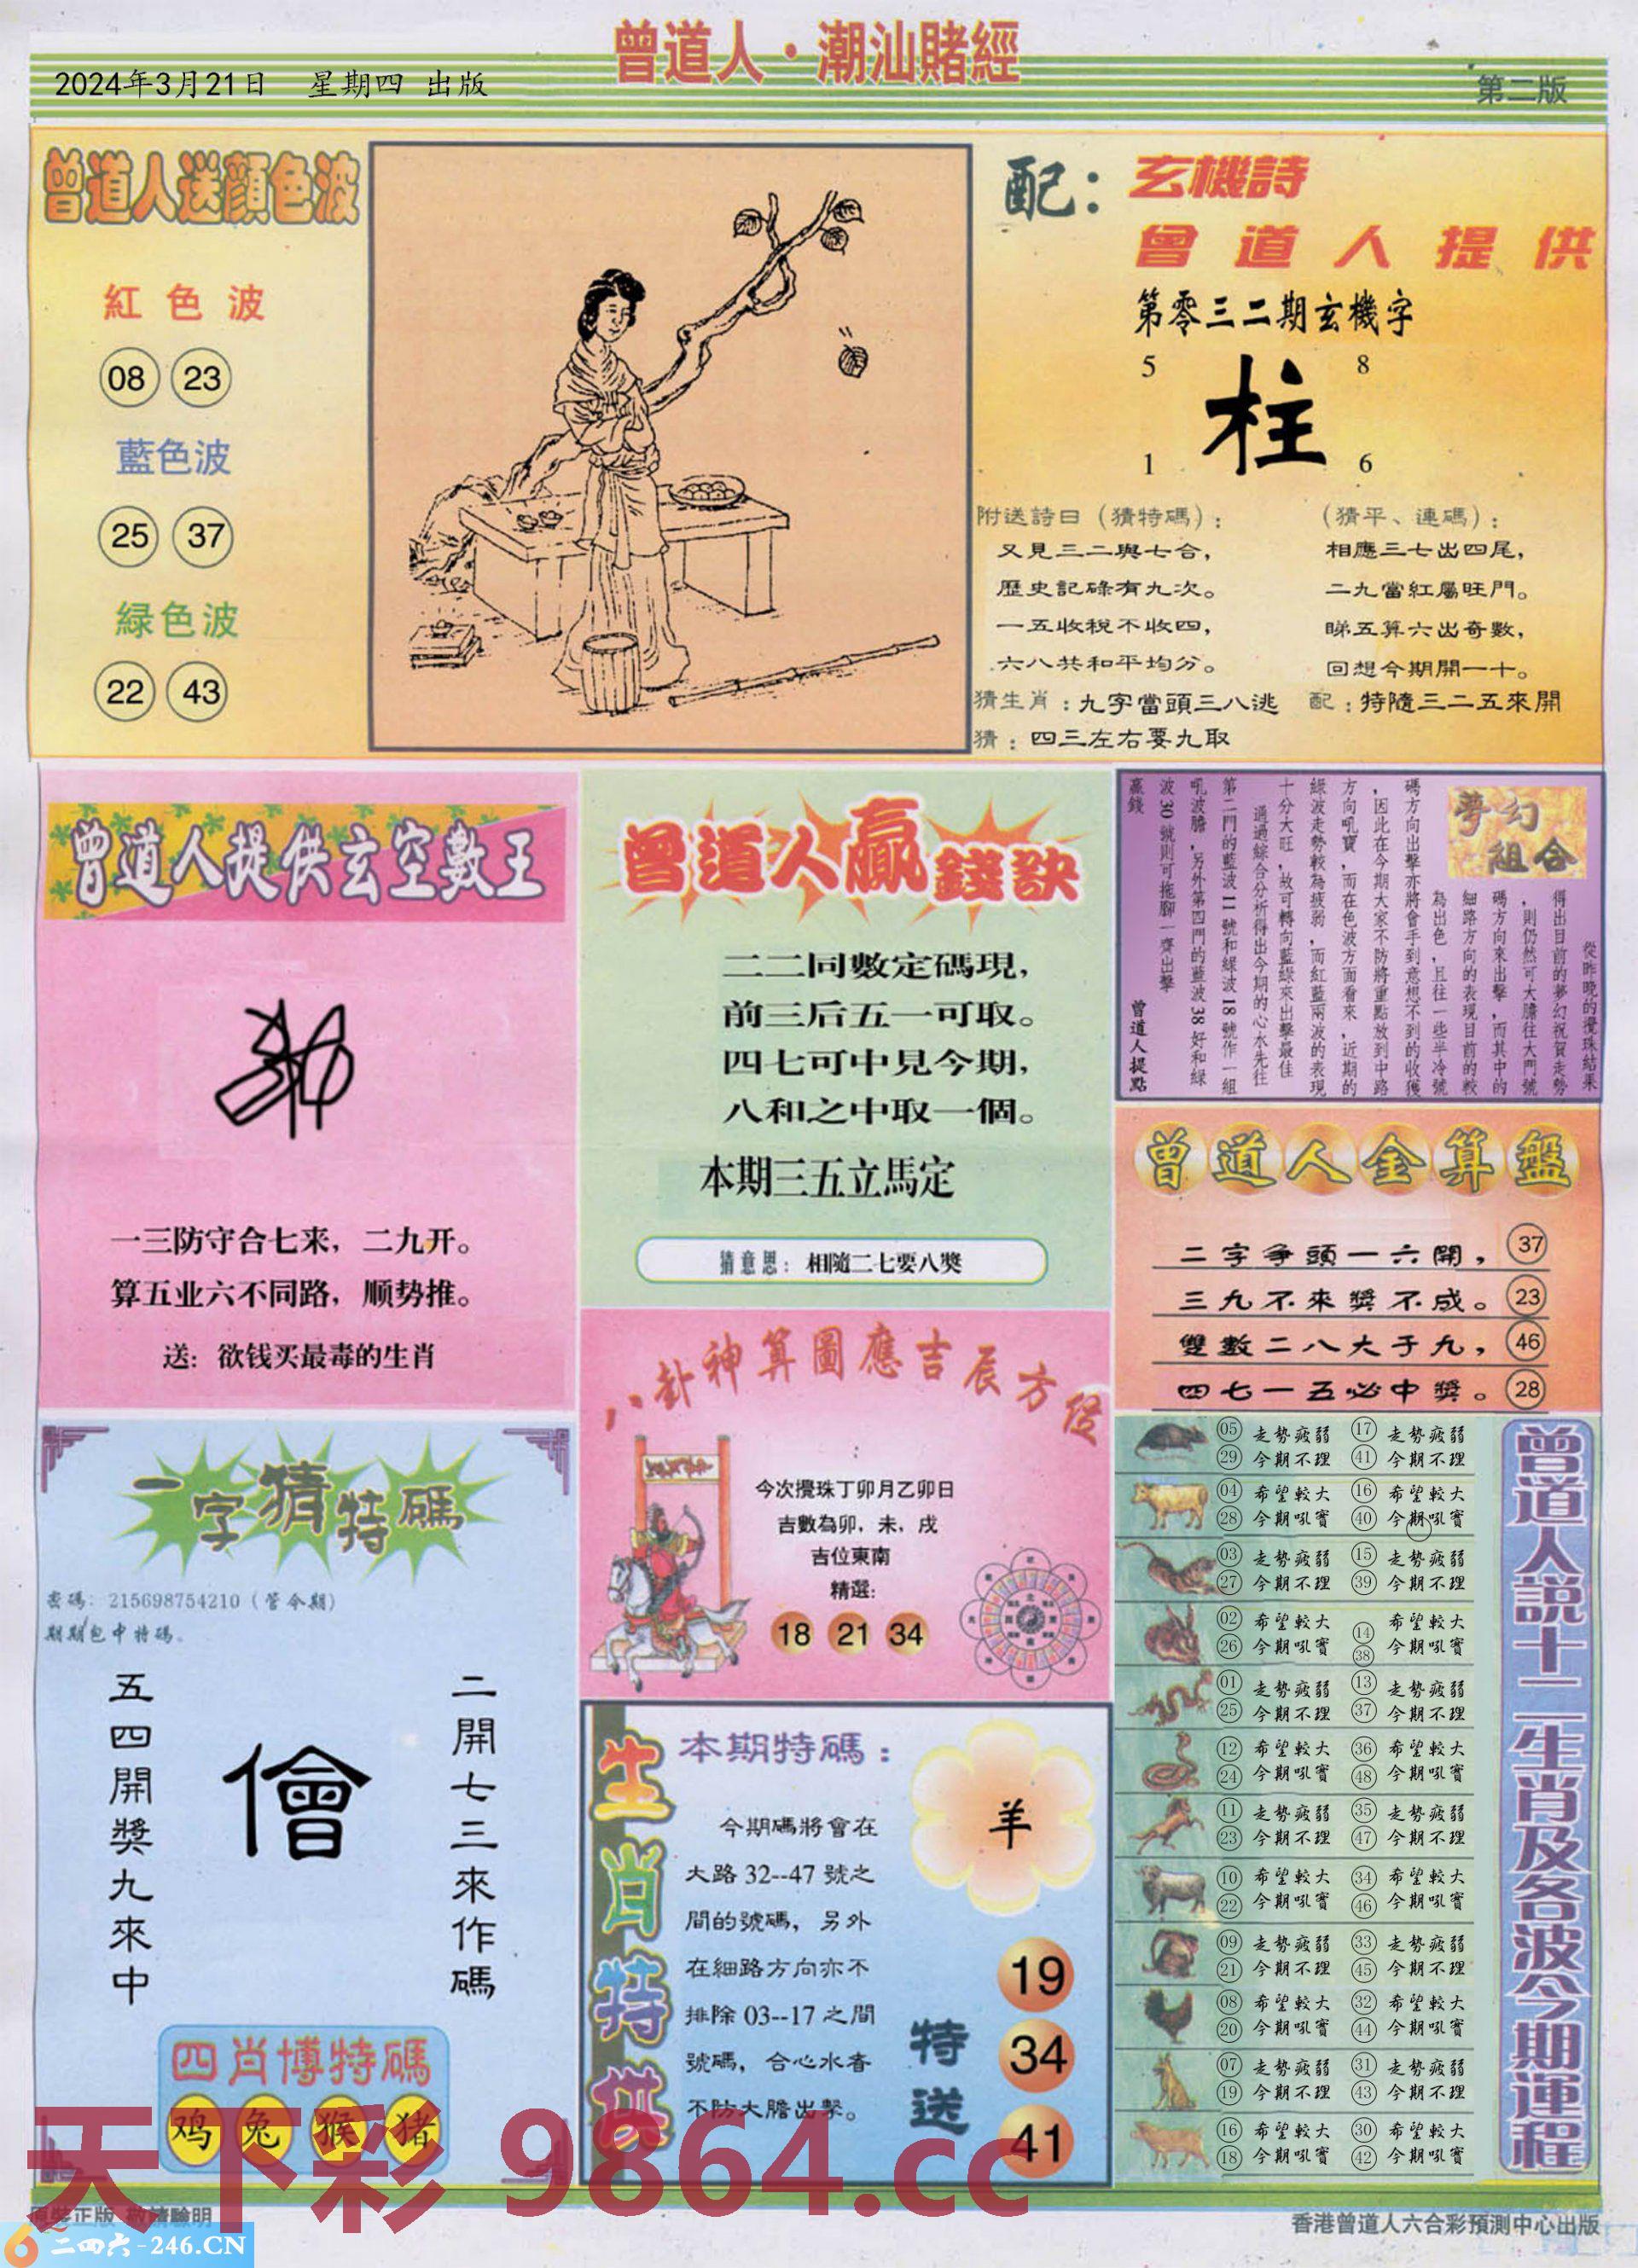 曾道人·潮汕賭經
2024年3月21日 星期四 出版
第二版
曾道人送顏色波
紅色波
08 23
藍色波
25 37
緑色波
22 43
配：玄機詩
曾道人提供
第零三二期玄機字
5 8
柱
1 6
附送詩曰（猜特碼）：
又見三二與七合，
歷史記碌有九次。
一五收稅不收四，
六八共和平均分。
（猜平、連碼）：
相應三七出四尾，
二九當紅屬旺門。
睇五算六出奇數，
回想今期開一十。
猜生肖：九字當頭三八逃 配：特隨三二五來開
猜：四三左右要九取
曾道人提供玄空數王
一三防守合七来，二九开。
算五业六不同路，顺势推。
送：欲钱买最毒的生肖
曾道人贏錢訣
二二同數定碼現，
前三后五一可取。
四七可中見今期，
八和之中取一個。
本期三五立馬定
猜意思：相隨二七要八獎
夢幻
組合
從昨晚的攪珠結果
得出目前的夢幻祝賀走勢
，則仍然可大膽往大門號
碼方向來出擊，而其中的
細路方向的表現目前的較
為出色，且往一些半冷號
碼方向出擊亦將會手到意想不到的收獲
，因此在今期大家不防將重點放到中路
方向吼寶，而在色波方面看來，近期的
綠波走勢較為疲弱，而紅藍兩波的表現
十分大旺，故可轉向藍綠來出擊最佳
通過綜合分析得出今期的心水先往
第二門的藍波11號和綠波18號作一組
吼波膽，另外第四門的藍波38好和綠
波30號則可拖腳一齊出擊
贏錢 曾道人提點
曾道人金算盤
二字爭頭一六開，37
三九不來獎不成。23
雙數二八大于九，46
四七一五必中獎。28
八卦神算圖應吉辰方位
今次攪珠丁卯月乙卯日
吉數為卯，未，戌
吉位東南
精選：
18 21 34
一字猜特碼
密碼：215698754210（管今期）
期期包中特碼。
五四開獎九來中
儈
二開七三來作碼
四肖博特碼
鸡 兔 猴 猪
生肖特供
本期特碼：
羊
今期碼將會在
大路32--47號之
間的號碼，另外
在細路方向亦不
排除03--17之間
號碼，合心水者
不防大膽出擊。
特送
19
34
41
曾道人說十二生肖及各波今期運程
05 走勢疲弱 17 走勢疲弱
29 今期不理 41 今期不理
04 希望較大 16 希望較大
28 今期吼實 40 今期吼實
03 走勢疲弱 15 走勢疲弱
27 今期不理 39 今期不理
02 希望較大 14 希望較大
26 今期吼實 38 今期吼實
01 走勢疲弱 13 走勢疲弱
25 今期不理 37 今期不理
12 希望較大 36 希望較大
24 今期吼實 48 今期吼實
11 走勢疲弱 35 走勢疲弱
23 今期不理 47 今期不理
10 希望較大 34 希望較大
22 今期吼實 46 今期吼實
09 走勢疲弱 33 走勢疲弱
21 今期不理 45 今期不理
08 希望較大 32 希望較大
20 今期吼實 44 今期吼實
07 走勢疲弱 31 走勢疲弱
19 今期不理 43 今期不理
16 希望較大 30 希望較大
18 今期吼實 42 今期吼實
天下彩 9864.cc
原裝正版 敬請驗明
二四六-246.CN
香港曾道人六合彩預測中心出版